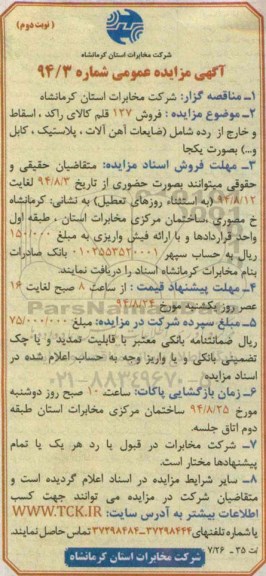 (نوبت دوم)
شرکت مخابرات استان کرمانشاه
آگهی مزایده عمومی شماره ۹۴/۳
۱ـ مناقصه گزار: شرکت مخابرات استان کرمانشاه
۲ـ موضوع مزایده : فروش ۱۲۷ قلم کالای راکد ، اسقاط
و خارج از رده شامل (ضایعات آهن آلات ، پلاستیک ، کابل
و...) بصورت یکجا
۳ـ مهلت فروش اسناد مزایده: متقاضیان حقیقی و
حقوقی میتوانند بصورت حضوری از تاریخ ۹۴/۸/۳ لغایت
۹۴/۸/۱۲ (به استثناء روزهای تعطیل) به نشانی: کرمانشاه
خ مصوری ساختمان مرکزی مخابرات استان ، طبقه اول
واحد قراردادها و با ارائه فیش واریزی به مبلغ ۱۵۰/۰۰۰
ریال به حساب سپهر ۰۱۰۳۵۵۳۵۲۰۰۰۱ بانک صادرات
بنام مخابرات کرمانشاه اسناد را دریافت نمایند.
۴ـ مهلت پیشنهاد قیمت : از ساعت ۸ صبح لغایت ۱۶
عصر روز یکشنبه مورخ ۹۴/۸/۲۴
۵ـ مبلغ سپرده شرکت در مزایده: مبلغ ۷۵/۰۰۰/۰۰۰
ریال ضمانتنامه بانکی معتبر با قابلیت تمدید و یا چک
تضمینی بانکی و یا واریز وجه به حساب اعلام شده در
اسناد مزایده
۶ـ زمان بازگشایی پاکات: ساعت ۱۰ صبح روز دوشنبه
مورخ ۹۴/۸/۲۵ ساختمان مرکزی مخابرات استان طبقه
دوم اتاق جلسه.
۷ـ شرکت مخابرات در قبول یا رد هر یک یا تمام
پیشنهادها مختار است.
۸ـ سایر شرایط مزایده در اسناد اعلام گردیده است و
متقاضیان شرکت در مزایده می توانند جهت کسب
اطلاعات بیشتر به آدرس سایت: WWW.TCK.IR
یا شماره تلفنهای ۳۷۲۹۸۴۴۴-۳۷۲۹۸۴۸۴ تماس حاصل نمایند.
ت ۲۵ - ۷/۲۶
شرکت مخابرات استان کرمانشاه